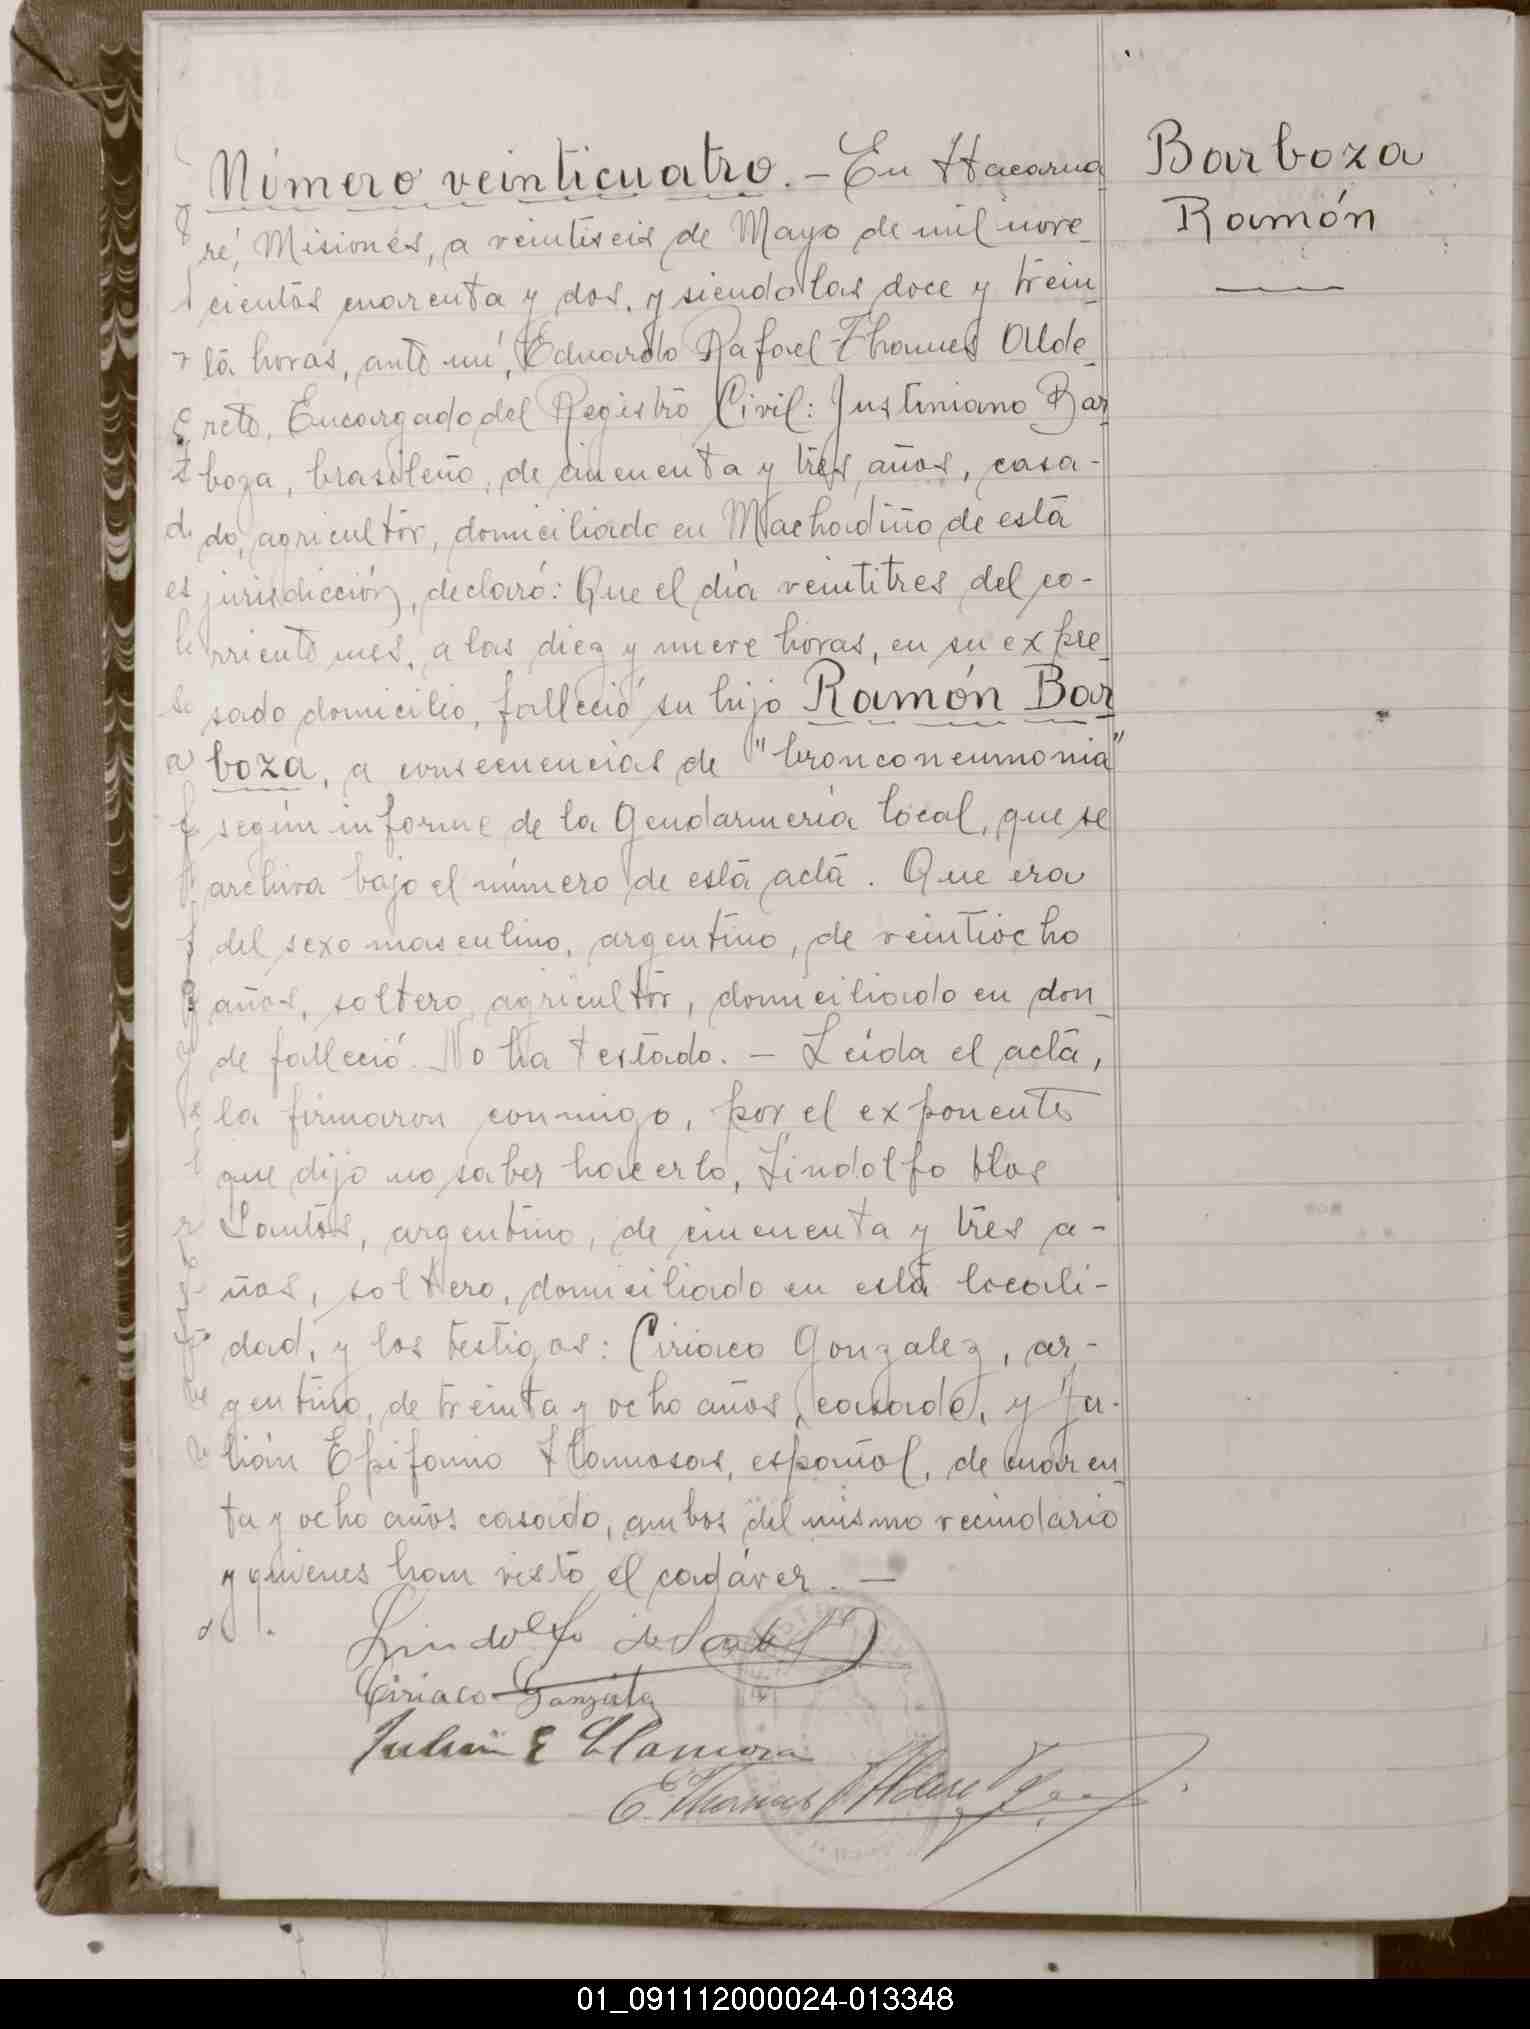 Número veinticuatro. - En Itacarua
ré, Misiones, a veintiseis de Mayo de mil nove
cientos cuarenta y dos, y siendo las doce y trein
ta horas, ante mí, Eduardo Rafael Thames Alde
rete, Encargado del Registro Civil: Justiniano Bar
boza, brasileño, de cincuenta y tres años, casa-
do, agricultor, domiciliado en Machadiño de esta
jurisdicción, declaró: Que el día veintitres del co-
rriente mes, a las diez y nueve horas, en su expre
sado domicilio, falleció su hijo Ramón Bar
boza, a consecuencias de "bronconeumonia"
según informe de la Gendarmería local, que se
archiva bajo el número de esta acta. Que era
del sexo masculino, argentino, de veintiocho
años, soltero, agricultor, domiciliado en don
de falleció. No ha testado. - Leída el acta,
la firmaron conmigo, por el exponente
que dijo no saber hacerlo, Lindolfo
Santos, argentino, de cincuenta y tres a-
ños, soltero, domiciliado en esta locali-
dad, y los testigos: Ciriaco Gonzalez, ar-
gentino, de treinta y ocho años, casado, y Ju-
lián Epifanio Llamosas, español, de cuaren
ta y ocho años casado, ambos del mismo vecindario
y quienes han visto el cadáver. -
Lindolfo de Santos
Ciriaco Gonzalez
Julian E Llamosa
E. Thames Alderete
Barboza
Ramón
01_091112000024-013348